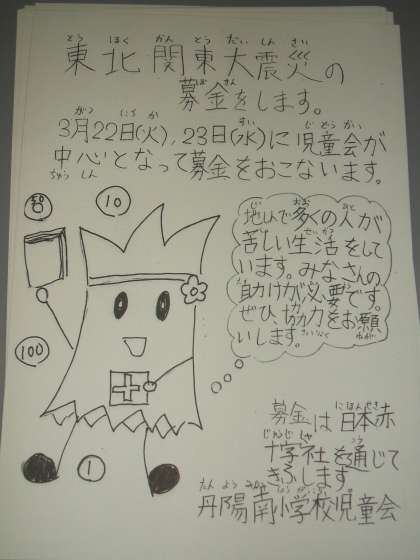 東北関東大震災の
募金をします。
3月22日(火),23日(水)に児童会が
中心となって募金をおこないます。
50
10
100
1
地しんで多くの人が
苦しい生活をして
います。みなさんの
助けが必要です。
ぜひ協力をお願
いします。
募金は日本赤
十字社を通じて
きふします。
丹陽南小学校児童会